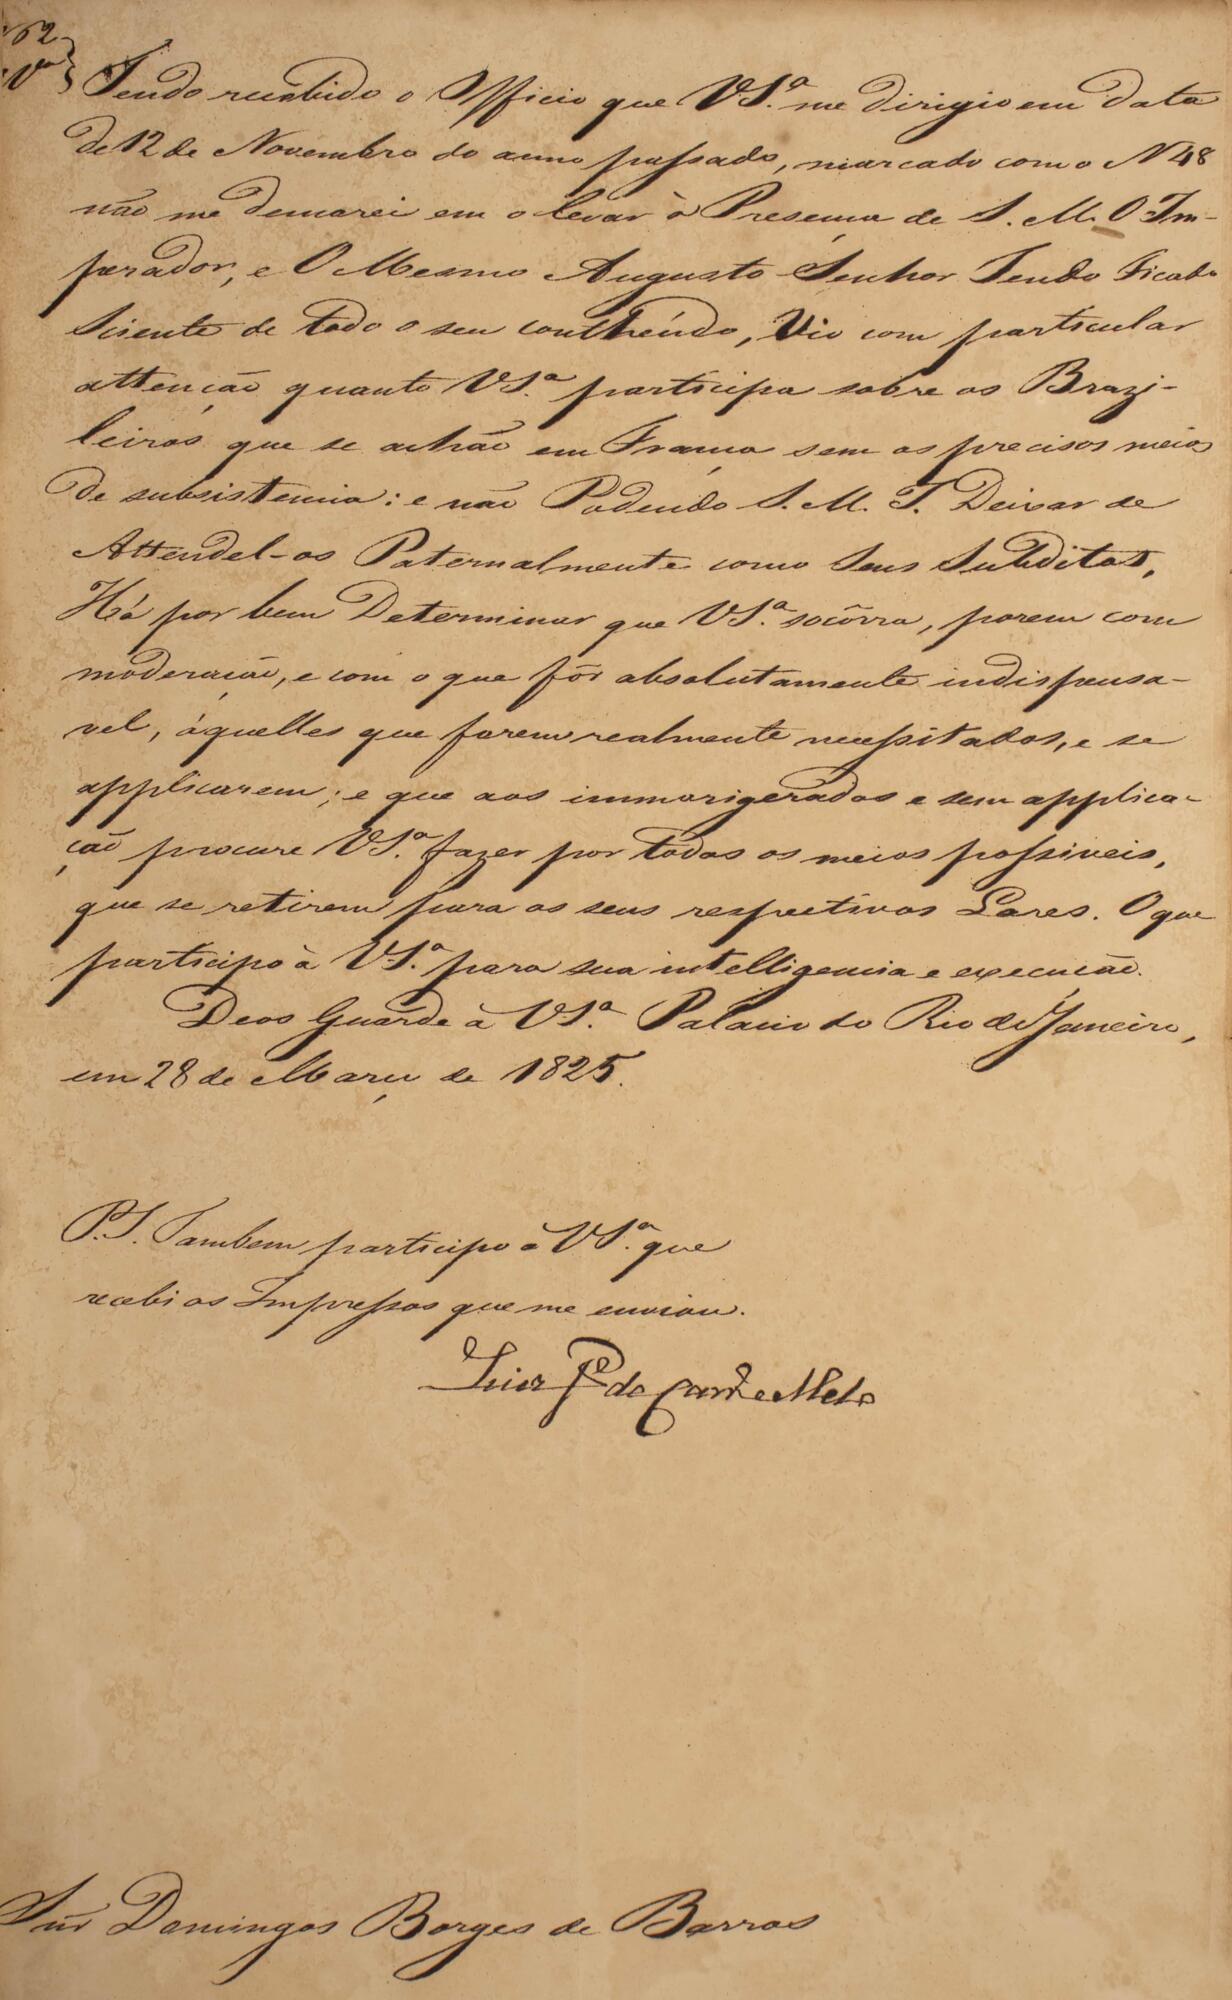 62
Vª
Tendo recebido o Officio que VSª. me dirigio em data
de 12 de Novembro do anno passado, marcado com o N 48
não me demorei em o levar à Presença de S. M. O Im-
perador, e O Mesmo Augusto Senhor Tendo Ficado
Sciente de todo o seu contheúdo, Vio com particular
attenção quanto VSª. participa sobre os Brazi-
leiros que se achão em França sem os precisos meios
de subsistencia: e não Podendo S. M. I. Deixar de
Attendel-os Paternalmente como Seus Subditos,
Há por bem Determinar que VSª. socôrra, porem com
moderação, e com o que fôr absolutamente indispensa-
vel, áquelles que forem realmente necessitados, e se
applicarem; e que aos immorigerados e sem applica-
ção procure VSª. fazer por todos os meios possiveis,
que se retirem para os seus respectivos Lares. O que
participo à VSª. para sua intelligencia e execução.
Deos Guarde à VSª. Palacio do Rio de Janeiro,
em 28 de Março de 1825.
P.S. Tambem participo à VSª. que
recebi os Impressos que me enviou.
Luiz Jé. de Carvº e Mello
Snr Domingos Borges de Barros